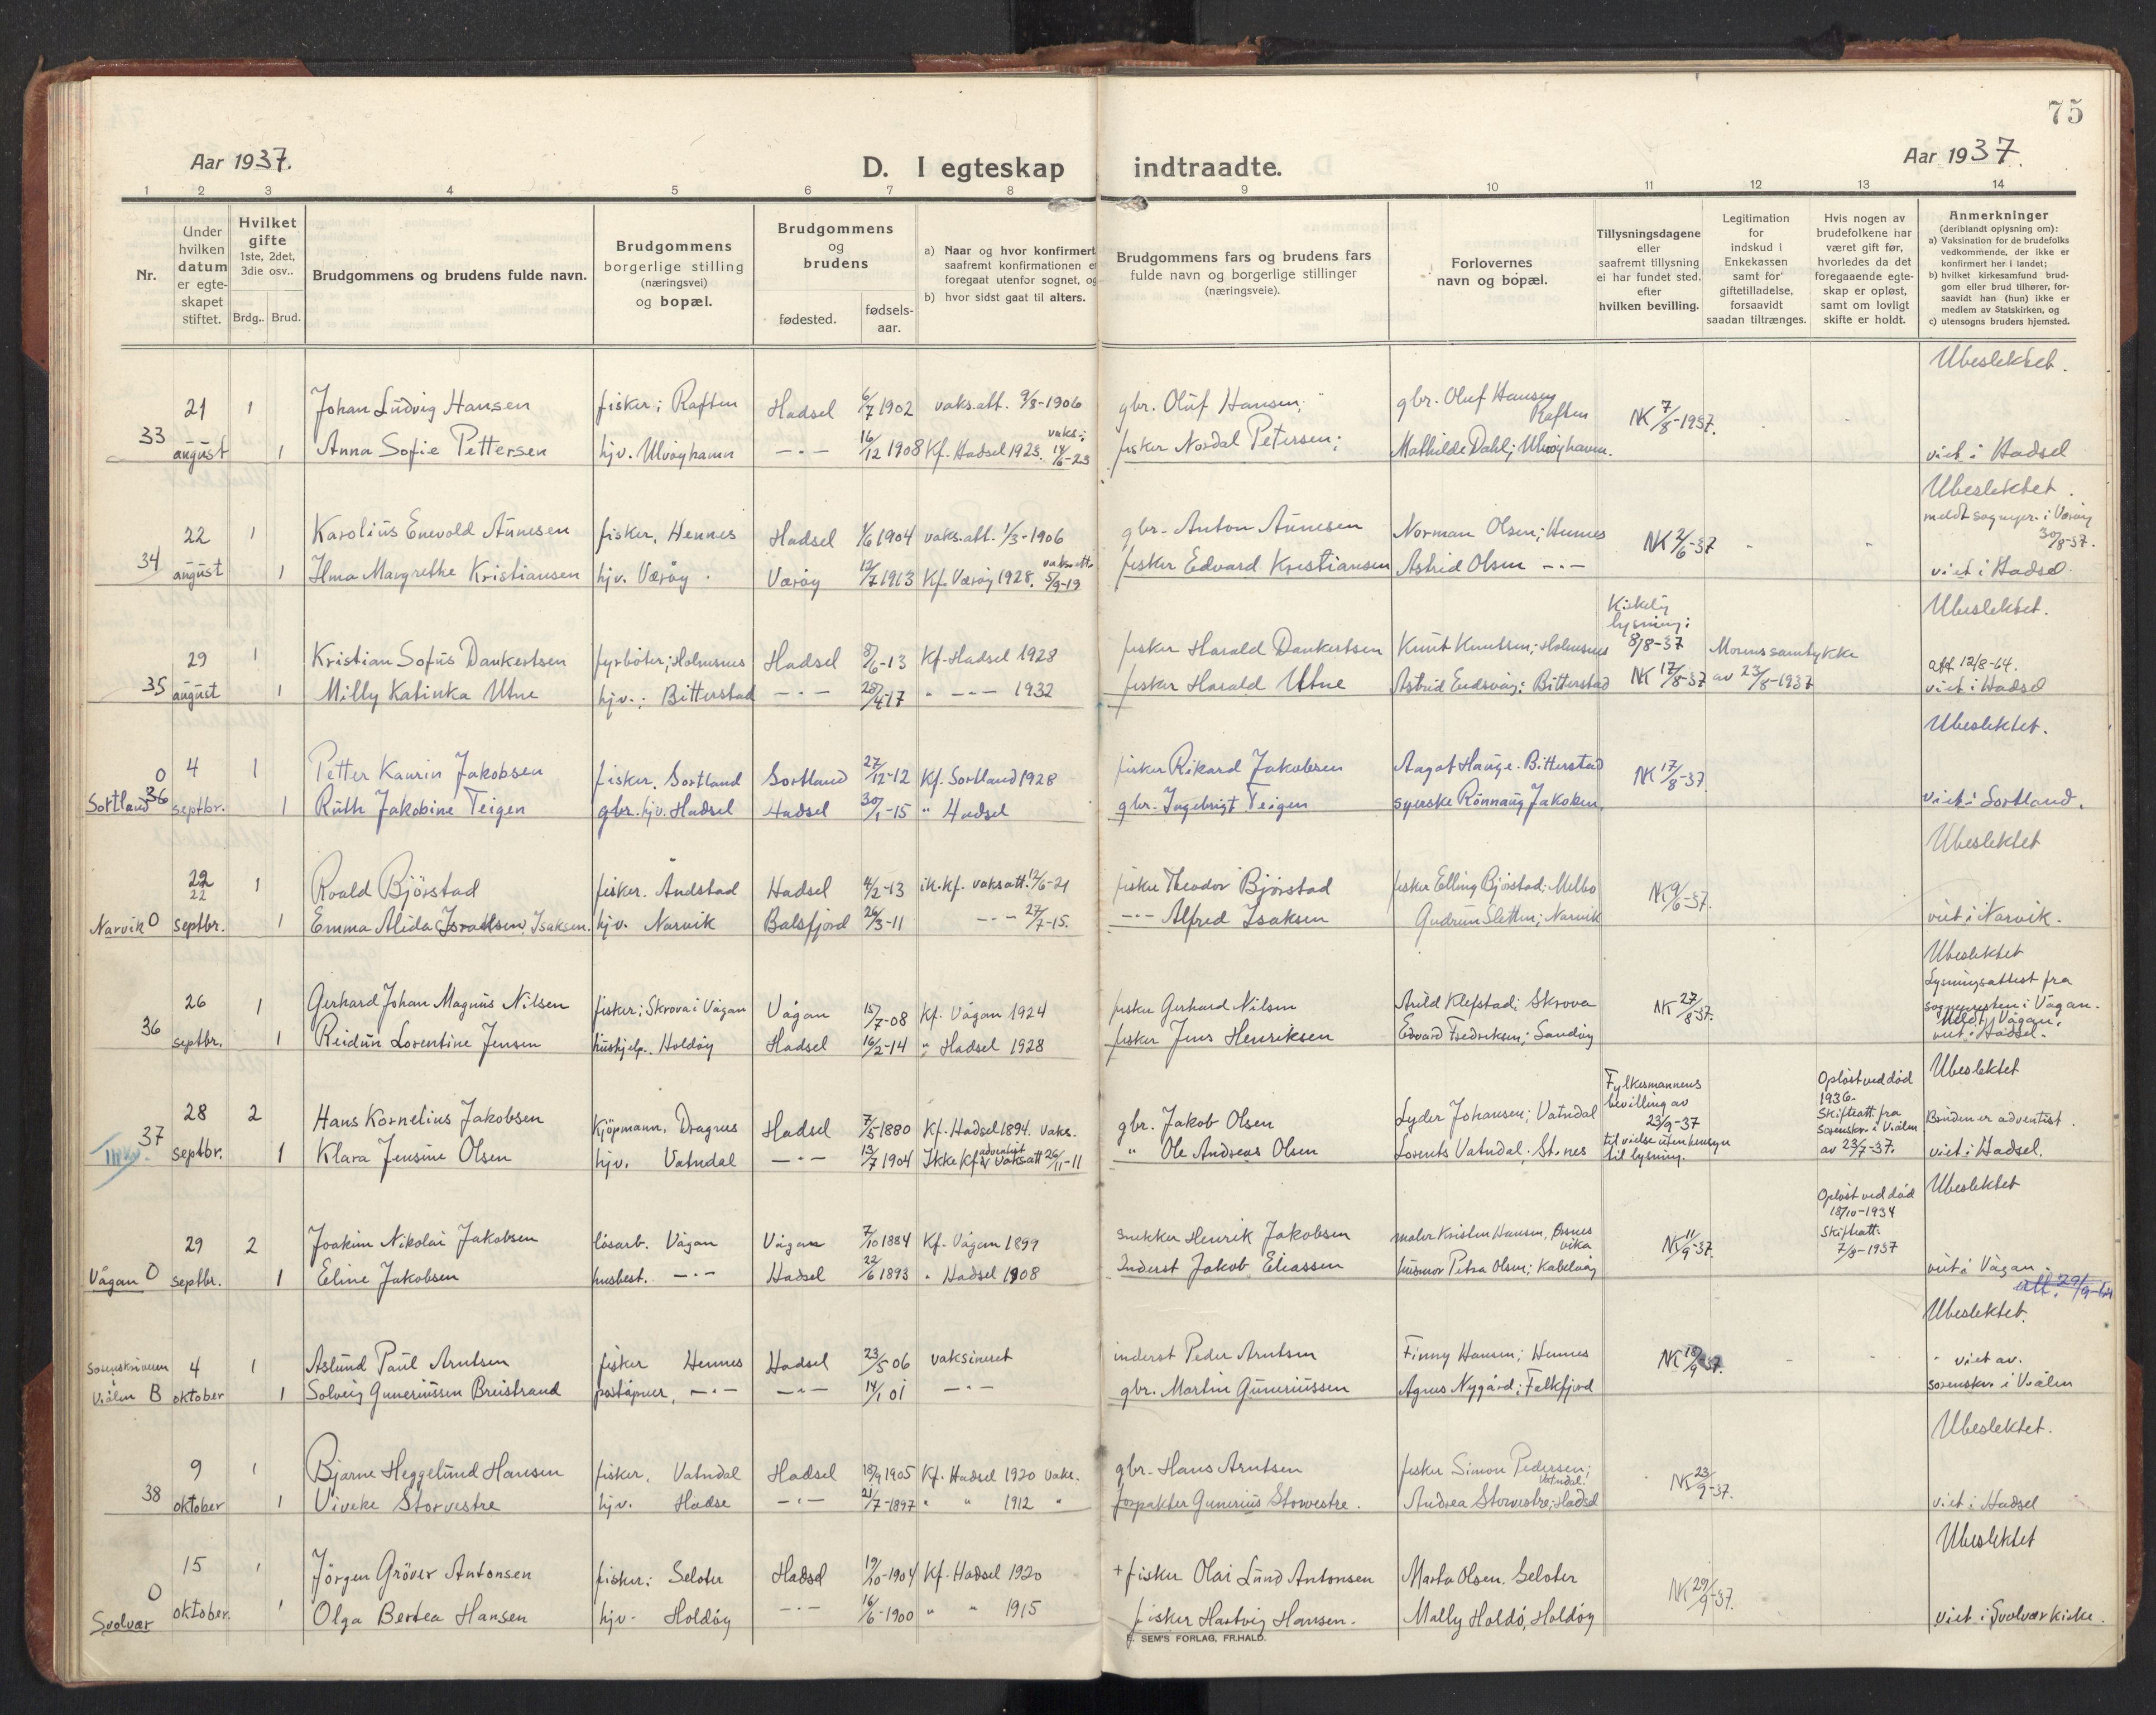 75
Aar 1937.
D. I egteskap indtraadte.
Aar 1937.
1 2 3 4 5 6 7 8 9 10 11 12 13 14
Nr.
Under hvilken datum er egteskapet stiftet.
Hvilket gifte 1ste, 2det, 3die osv..
Brdg.. Brud.
Brudgommens og brudens fulde navn.
Brudgommens borgerlige stilling (næringsvei) og bopæl.
Brudgommens og brudens
fødested.
fødselsaar.
a) Naar og hvor konfirmert
saafremt konfirmationen e
foregaat utenfor sognet, og
b) hvor sidst gaat til alters.
Brudgommens fars og brudens fars
fulde navn og borgerlige stillinger
(næringsveie).
Forlovernes
navn og bopæl.
Tillysningsdagene
eller
saafremt tillysning
ei har fundet sted.
efter
hvilken bevilling.
Legitimation
for
indskud i
Enkekassen
samt for
giftetilladelse,
forsaavidt
saadan tiltrænges.
Hvis nogen av
brudefolkene har
været gift før,
hvorledes da det
foregaaende egte-
skap er opløst,
samt om lovligt
skifte er holdt.
Anmerkninger
(deriblandt oplysning om):
a) Vaksination for de brudefolks
vedkommende, der ikke er
konfirmert her i landet;
b) hvilket kirkesamfund brud-
gom eller brud tilhører, for-
saavidt han (hun) ikke er
medlem av Statskirken, og
c) utensogns bruders hjemsted.
Ubeslektet.
21 1 Johan Ludvig Hansen fisker; Raften Hadsel 6/7 1902 vaks.att. 9/8-1906 gbr. Oluf Hansen; gbr. Oluf Hansen Raften NK 7/8-1937.
33 august 1 Anna Sofie Pettersen hjv. Ulvøyhamn -"- 16/12 1908 Kf. Hadsel 1923. vaks.; 14/6-23 fisker Nordal Petersen; Mathilde Dahl; Ulvøyhavn. viet i Hadsel
Ubeslektet.
22 1 Karolius Enevold Aunesen fisker, Hennes Hadsel 1/6 1904 vaks.att. 1/3-1906 gbr. Anton Aunesen Norman Olsen; Hennes NK 2/6-37 meldt sogneper. i Værøy 30/8-37.
34 august 1 Ilma Margrethe Kristiansen hjv. Værøy. Værøy 12/7 1913 Kf. Værøy 1928. vaks.att. 5/9-19 fisker Edvard Kristiansen Astrid Olsen -"- viet i Hadsel.
Ubeslektet.
29 1 Kristian Sofus Dankertsen fyrbøter; Holmsnes Hadsel 8/6-13 Kf. Hadsel 1928 fisker Harald Dankertsen Knut Knutsen; Holmsnes lysning; 8/8-37 Morens samtykke
35 august 1 Milly Katinka Utne hjv.; Bitterstad -"- 25/4 17 " -"- 1932 fisker Harald Utne Bitterstad NK 17/8-37 av 23/8-1937 att 12/8-64. viet i Hadsel
Ubeslektet.
O 4 1 Petter Kaurin Jakobsen fisker, Sortland Sortland 27/12-12 Kf. Sortland 1928 fisker Rikard Jakobsen Aagot Hauge. Bitterstad NK 17/8-37
Sortland 36 septbr. 1 Ruth Jakobine Teigen gbr. hjv. Hadsel Hadsel 30/1-15 " Hadsel gbr. Ingebrigt Teigen syerske Rønnaug Jakobsen. viet i Sortland.
Ubeslektet
22 22 1 Roald Bjørstad fisker. Andstad Hadsel 4/2-13 ik.kf. vaksatt. 12/6-21 fisker Theodor Bjørstad fisker Elling Bjørstad; Melbo NK 9/6-37.
Narvik O septbr. 1 Emma Alida Isaksen. hjv. Narvik Balsfjord 26/3-11 -"- 27/7-15. -"- Alfred Isaksen Gudrun Sletten; Narvik viet i Narvik.
Ubeslektet
26 1 Gerhard Johan Magnus Nilsen fisker; Skrova i Vågan Vågan 15/7-08 Kf. Vågan 1924 fisker Gerhard Nilsen Arild Klefstad; Skrova NK 27/8-37. Lysningsattest fra sognepresten i Vågan.
36 septbr. 1 Reidun Lorentine Jensen hushjelp. Holdøy Hadsel 16/2-14 " Hadsel 1928 fisker Jens Henriksen Edvard Fredriksen; Sandøy Meldt Vågan. viet i Hadsel.
Ubeslektet
28 2 Hans Kornelius Jakobsen Kjøpmann, Dragnes Hadsel 7/5 1880 Kf. Hadsel 1894. vaks. gbr. Jakob Olsen Lyder Johansen; Vatndal Fylkesmannens bevilling av 23/9-37 Opløst ved død 1936. Skifteatt. fra Sorenskr. i V.ålen Bruden er adventist.
37 septbr. 1 Klara Jensine Olsen hjv. Vatndal -"- 13/7 1904 Ikke Kf. adventist Vaksatt 26/11-11 " Ole Andreas Olsen Lorents Vatndal. St.nes til vielse uten hensyn til lysning. av 23/7-37. viet i Hadsel.
Ubeslektet
29 2 Joakim Nikolai Jakobsen løsarb. Vågan Vågan 7/10 1884 Kf. Vågan 1899 snekker Henrik Jakobsen maler Kristen Hansen, Ørsnesvika NK 11/9-37. Opløst ved død 18/10-1934 Skifteatt. 7/8-1937
Vågan O septbr. 1 Eline Jakobsen husbest. -"- Hadsel 22/6 1893 " Hadsel 1908 Inderst Jakob Eliassen husmor Petra Olsen; Kabelvåg viet i Vågan.
Ubeslektet.
Sorenskriveren i 4 1 Aslund Paul Arntsen fisker Hennes Hadsel 23/5 06 vaksinert inderst Peder Arntsen Finny Hansen; Hennes NK 18/9 37. viet av.
V.ålen B oktober 1 Solveig Guneriussen Breistrand poståpner, -"- -"- 14/1 01 -"- gbr. Martin Guneriussen Agnes Nygård; Falkfjord sorenskr. i V.ålen
Ubeslektet.
9 1 Bjarne Heggelund Hansen fisker, Vatndal Hadsel 18/9 1905 Kf. Hadsel 1920 vaks. gbr. Hans Arntsen fisker Simon Pedersen; Vatndal. NK 23/9-37.
38 oktober 1 Viveke Storvestre hjv. Hadse -"- 21/7-1897 " " 1912 " forpakter Gunerius Storvestre. Andrea Storvestre; Hadsel viet i Hadsel
Ubeslektet
15 1 Jørgen Grøver Antonsen fisker; Seloter Hadsel 19/10-1904 Kf. Hadsel 1920 + fisker Olai Lund Antonsen Marta Olsen. Seloter NK 29/9-37.
O Svolvær oktober. 1 Olga Bertea Hansen hjv. Holdøy -"- 16/6-1900 " " 1915 fisker Hartvig Hansen. Mally Holdø, Holdøy viet i Svolvær kirke.
E. SEM'S FORLAG, FR.HALD.